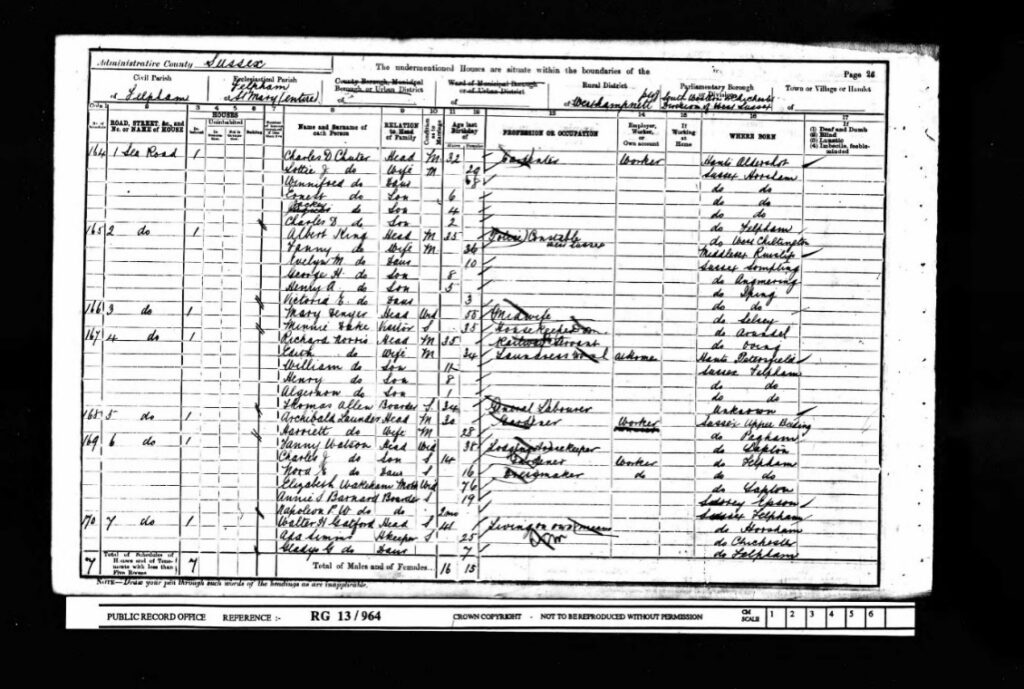 Administrative County Sussex
The undermentioned Houses are situate within the boundaries of the
Page 26
Civil Parish
of Felpham
Ecclesiastical Parish
Felpham
of St Mary (entire)
County Borough, Municipal Borough, or Urban District
of
Ward of Municipal Borough or of Urban District
of
Rural District
of Westhampnett
Parliamentary Borough or Division
Town or Village or Hamlet
ROAD, STREET, &c., and No. or NAME of HOUSE
HOUSES
Name and Surname of each Person
RELATION to Head of Family
Age last Birthday
PROFESSION OR OCCUPATION
Employer, Worker, or Own account
If Working at Home
WHERE BORN
(1) Deaf and Dumb
(2) Blind
(3) Lunatic
(4) Imbecile, feeble-minded
164 1 Sea Road 1 Charles D Chuter Head M 32 Carpenter Worker Hants Aldershot
Lottie J do Wife M 29 Sussex Horsham
Winnifred do Daur 8 do do
Ernest do Son 6 do do
do Son 4 do do
Charles D. do Son 2 do Felpham
165 2 do 1 Albert King Head M 35 Police Constable West Sussex do West Chiltington
Fanny do Wife M 36 Middlesex Ruislip
Evelyn M. do Daur 10 Sussex Sompting
George H. do Son 8 do Angmering
Henry A. do Son 5 do Iping
Victoria E. do Daur 3 do do
166 3 do 1 Mary Head Wid 55 Midwife do Selsey
Minnie Visitor S 35 Housekeeper do Arundel
167 4 do 1 Richard Norris Head M 35 Railway Servant do Oving
Edith do Wife M 34 Laundress At Home Hants Petersfield
William do Son 12 Sussex Felpham
Henry do Son 8 do do
Algernon do Son 1 do do
Thomas Allen Boarder S 34 General Labourer Unknown
168 5 do 1 Archibald Launder Head M 30 Gardener Worker Sussex Upper Beeding
Harriett do Wife M 28 do Pagham
169 6 do 1 Fanny Watson Head Wid 38 Lodging Ho keeper do Yapton
Charles J do Son S 14 Gardener Worker do Felpham
Nora E do Daur S 16 Dressmaker do do do
Elizabeth Wakeham Moth Wid 76 do Yapton
Annie S Barnard Boarder S 19 Surrey Epsom
Napoleon P.W. do do 2mo Sussex Felpham
170 7 do 1 Walter H Gatford Head S 41 Living on own means do Horsham
Ada Simms Hkeeper S 25 do Chichester
Gladys G. do Daur 7 do Felpham
7 Total of Schedules of Houses and of Tenements with less than Five Rooms 7 Total of Males and of Females... 16 15
NOTE—Draw your pen through such words of the headings as are inapplicable.
PUBLIC RECORD OFFICE REFERENCE :- RG 13/964 CROWN COPYRIGHT - NOT TO BE REPRODUCED WITHOUT PERMISSION CM SCALE 1 2 3 4 5 6